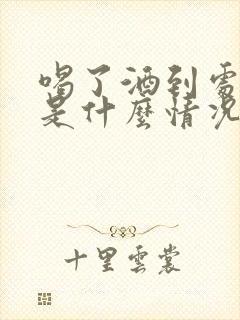 喝了酒到需
是什麼情況
十里雲裳